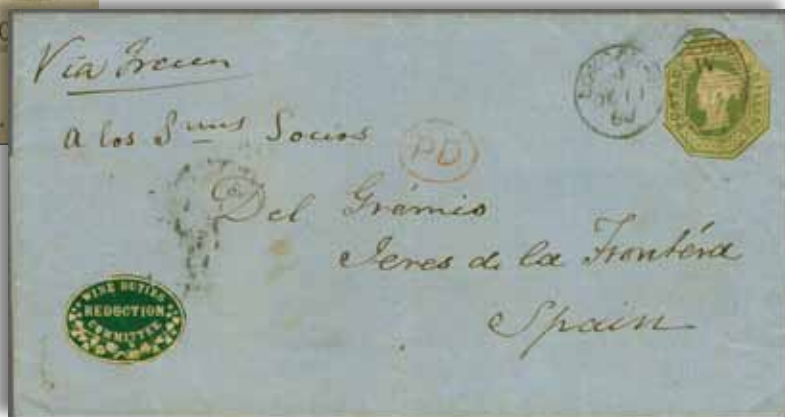 Via Irun
A los Sres Socios
PD
Del Grémio
Jeres de la Frontéra
Spain
WINE DUTIES
REDUCTION
COMMITTEE